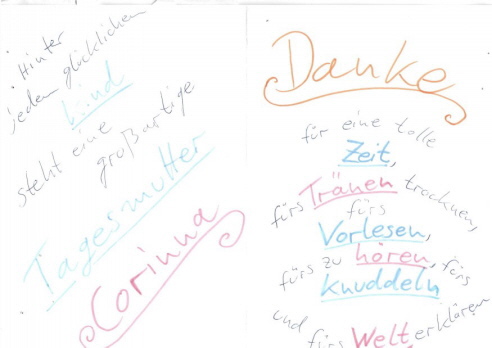 Hinter
jedem glücklichen
Kind
steht eine
großartige
Tagesmutter
Corinna
Danke
für eine tolle
Zeit,
fürs Tränen trocknen,
fürs
Vorlesen,
fürs zu hören, fürs
knuddeln
und fürs Welt erklären